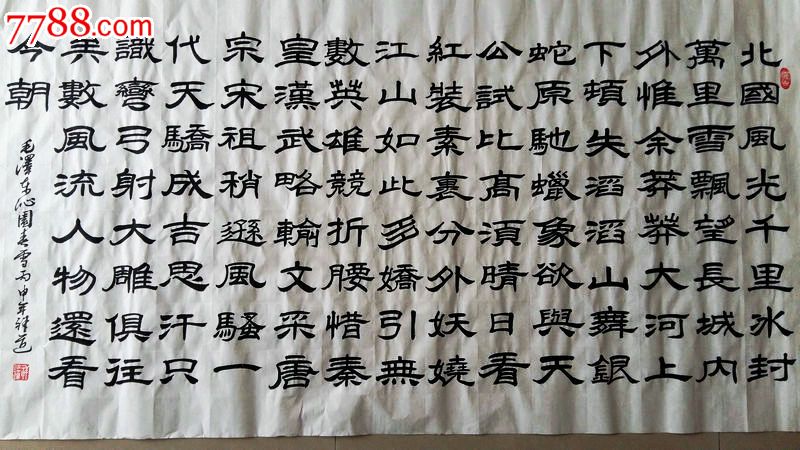 7788.com
北國風光千里冰封
萬里雪飄望長城内
外惟余莽莽大河上
下頓失滔滔山舞銀
蛇原馳蠟象欲與天
公試比高須晴日看
紅裝素裹分外妖嬈
江山如此多嬌引無
數英雄競折腰惜秦
皇漢武略輸文采唐
宗宋祖稍遜風騷一
代天驕成吉思汗只
識彎弓射大雕俱往
矣數風流人物還看
今朝
毛澤东沁園春雪丙申年